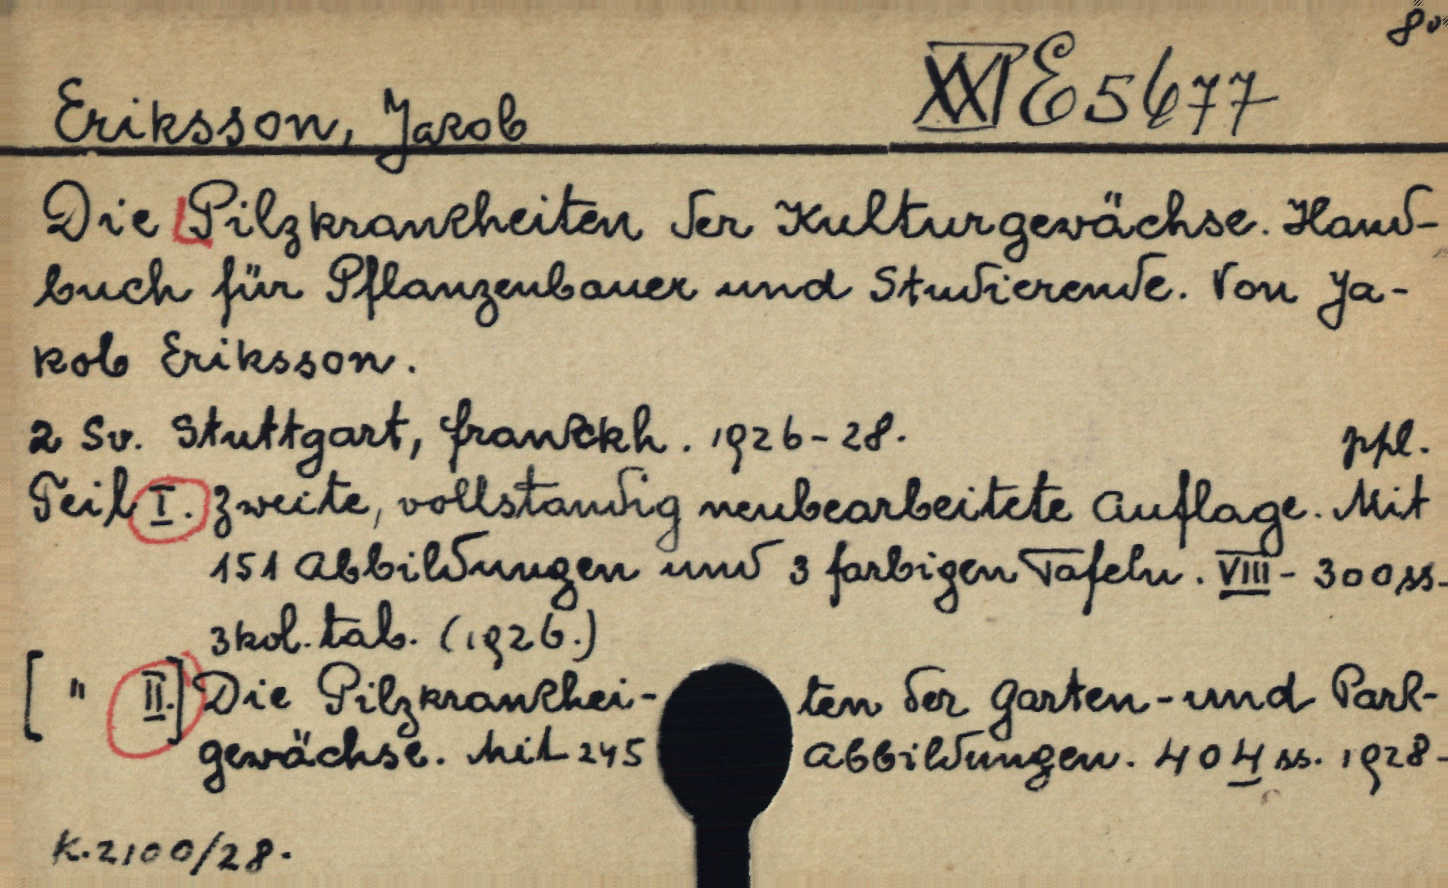 8°
Eriksson, Jakob
XVI E 5677
Die Pilzkrankheiten der Kulturgewächse. Hand-
buch für Pflanzenbauer und Studierende. Von Ja-
kob Eriksson.
2 Sv. Stuttgart, Franckh. 1926-28. ppl.
Teil I. Zweite, vollstandig neubearbeitete Auflage. Mit
151 Abbildungen und 3 farbigen Tafeln. VIII - 300 ss.
3 kol. tab. (1926.)
[ " II.] Die Pilzkrankhei- ten der Garten- und Park-
gewächse. Mit 245 Abbildungen. 404 ss. 1928-
K. 2100/28.